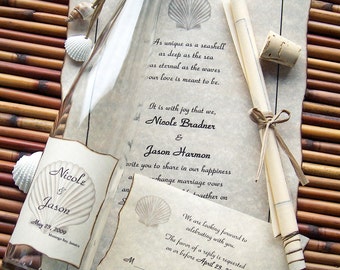 As unique as a seashell
as deep as the sea
as eternal as the waves
our love is meant to be.
It is with joy that we,
Nicole Bradner
&
Jason Harmon
invite you to share in our happiness
exchange marriage vows
Nicole
&
Jason
May 29, 2009
We are looking forward to
celebrating with you.
The favor of a reply is requested
on or before April 29,
M